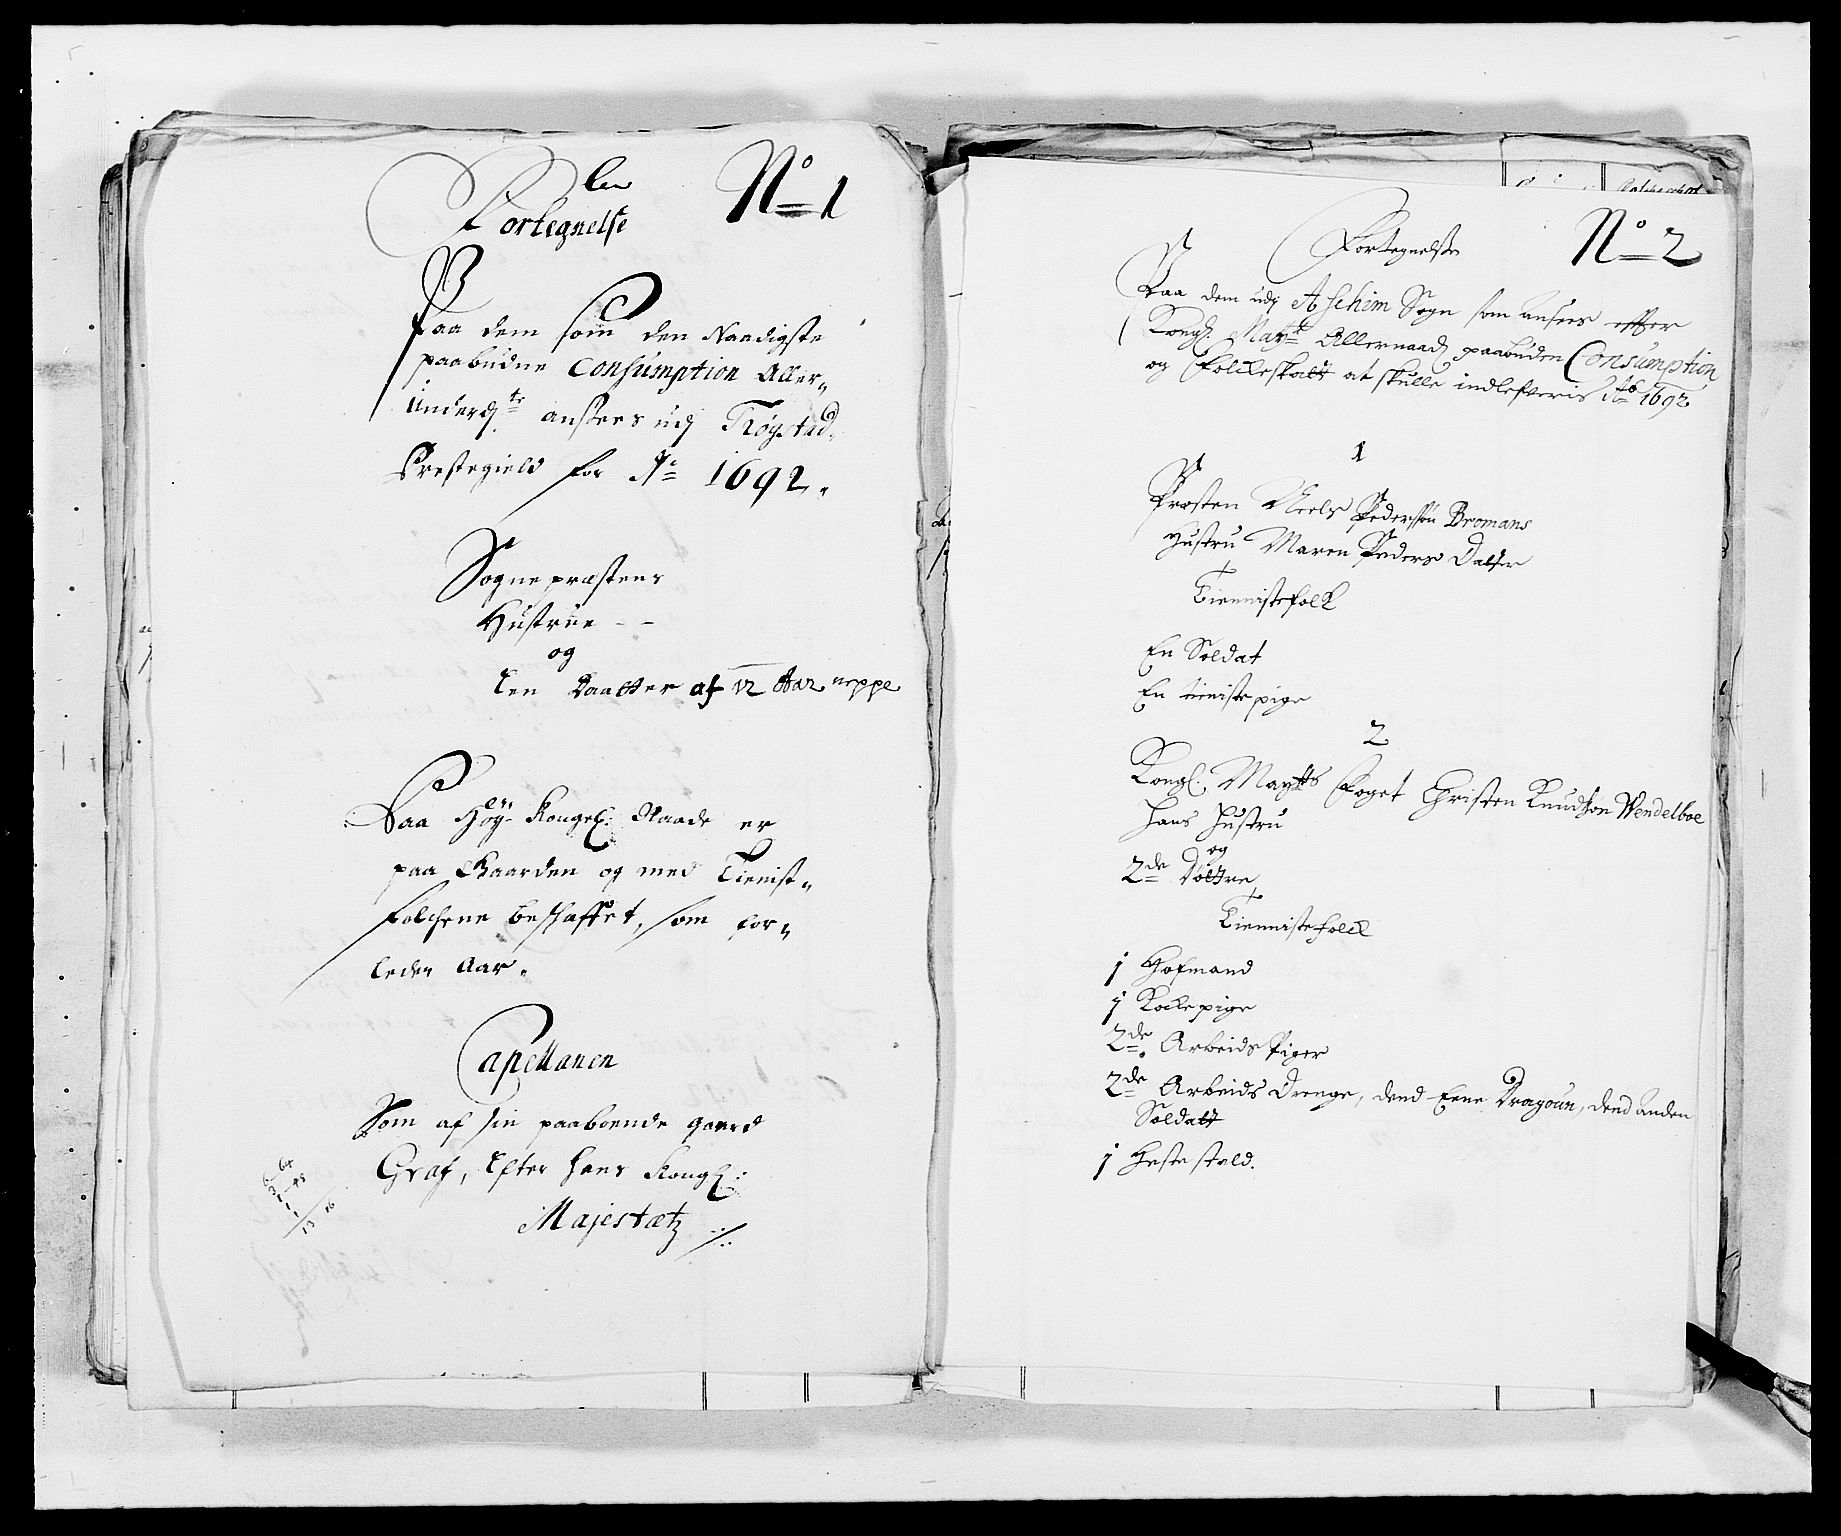 No 1
En
Fortegnelse
Paa dem som den Naadigste
paabudne Consumption Aller-
underd.te ansees udj Trøgstad
Prestegield for Ao 1692.
Sognepræstens
Hustrue - -
og
Een Daatter af 12 Aar neppe
Paa Høy- Kongel: Naade er
paa Gaarden og med Tienist-
folchene beskaffet, som for-
leden Aar.
Capellanen
Som af sin paaboende gaard
Graf, Efter hans Kongl:
Majestætz
No 2
Fortegnelse
Paa dem udj Aschim Sogn som ansees effter
Kongl. Maytt Allernaad paabuden Consumption
og Folckeskatt at skulle indlefveris Ao 1692
1
Præsten Neels Pedersøn Bromans
Hustru Maren Peders Datter
Tiennistefolk
En Soldat
En tienistepige
2
Kongl. Maytts Foget Christen Knudsøn Wendelboe
Hans Hustru
og
2de Døttre
Tiennistefolck
1 Hofmand
1 Kockepige
2de Arbeids Piger
2de Arbeids Drenge, dend Eene Dragoun, dend anden
Soldatt
1 Heste stald.